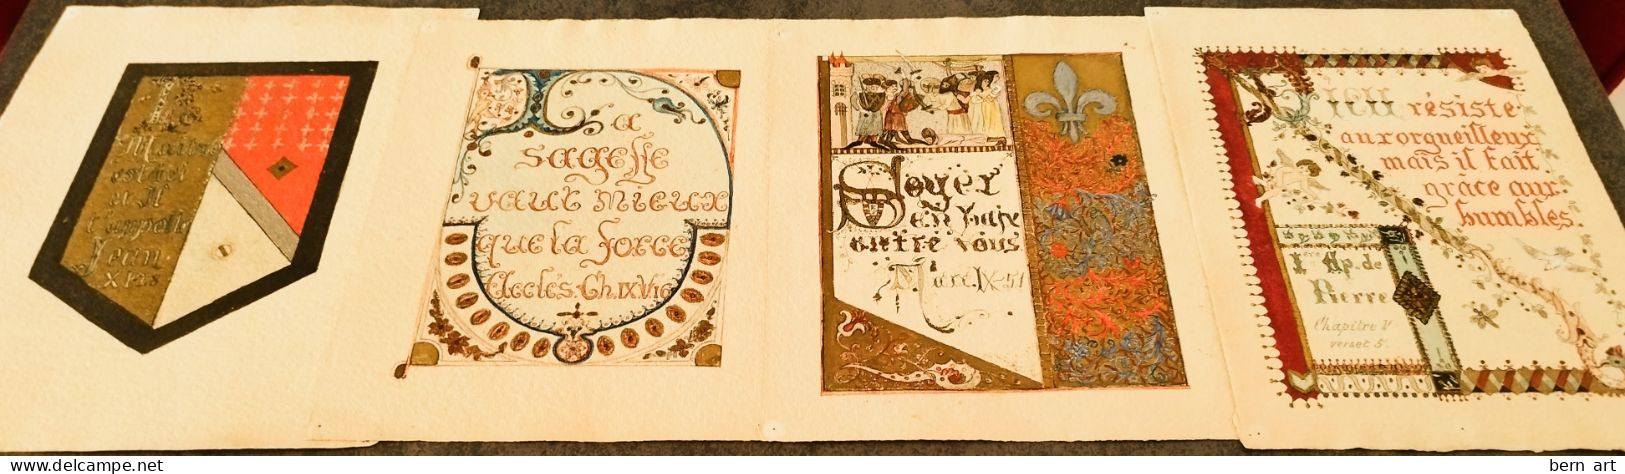 Le
Maître
est ici
Jean.
XI 28
La
sagesse
vaut mieux
que la force
Eccles. Ch. IX V 16
Soyez
en paix
entre vous
Marc. IX-51
Dieu résiste
aux orgueilleux
mais il fait
grâce aux
humbles.
Ap. de
Pierre
Chapitre V
verset 5.
delcampe.net
bern art